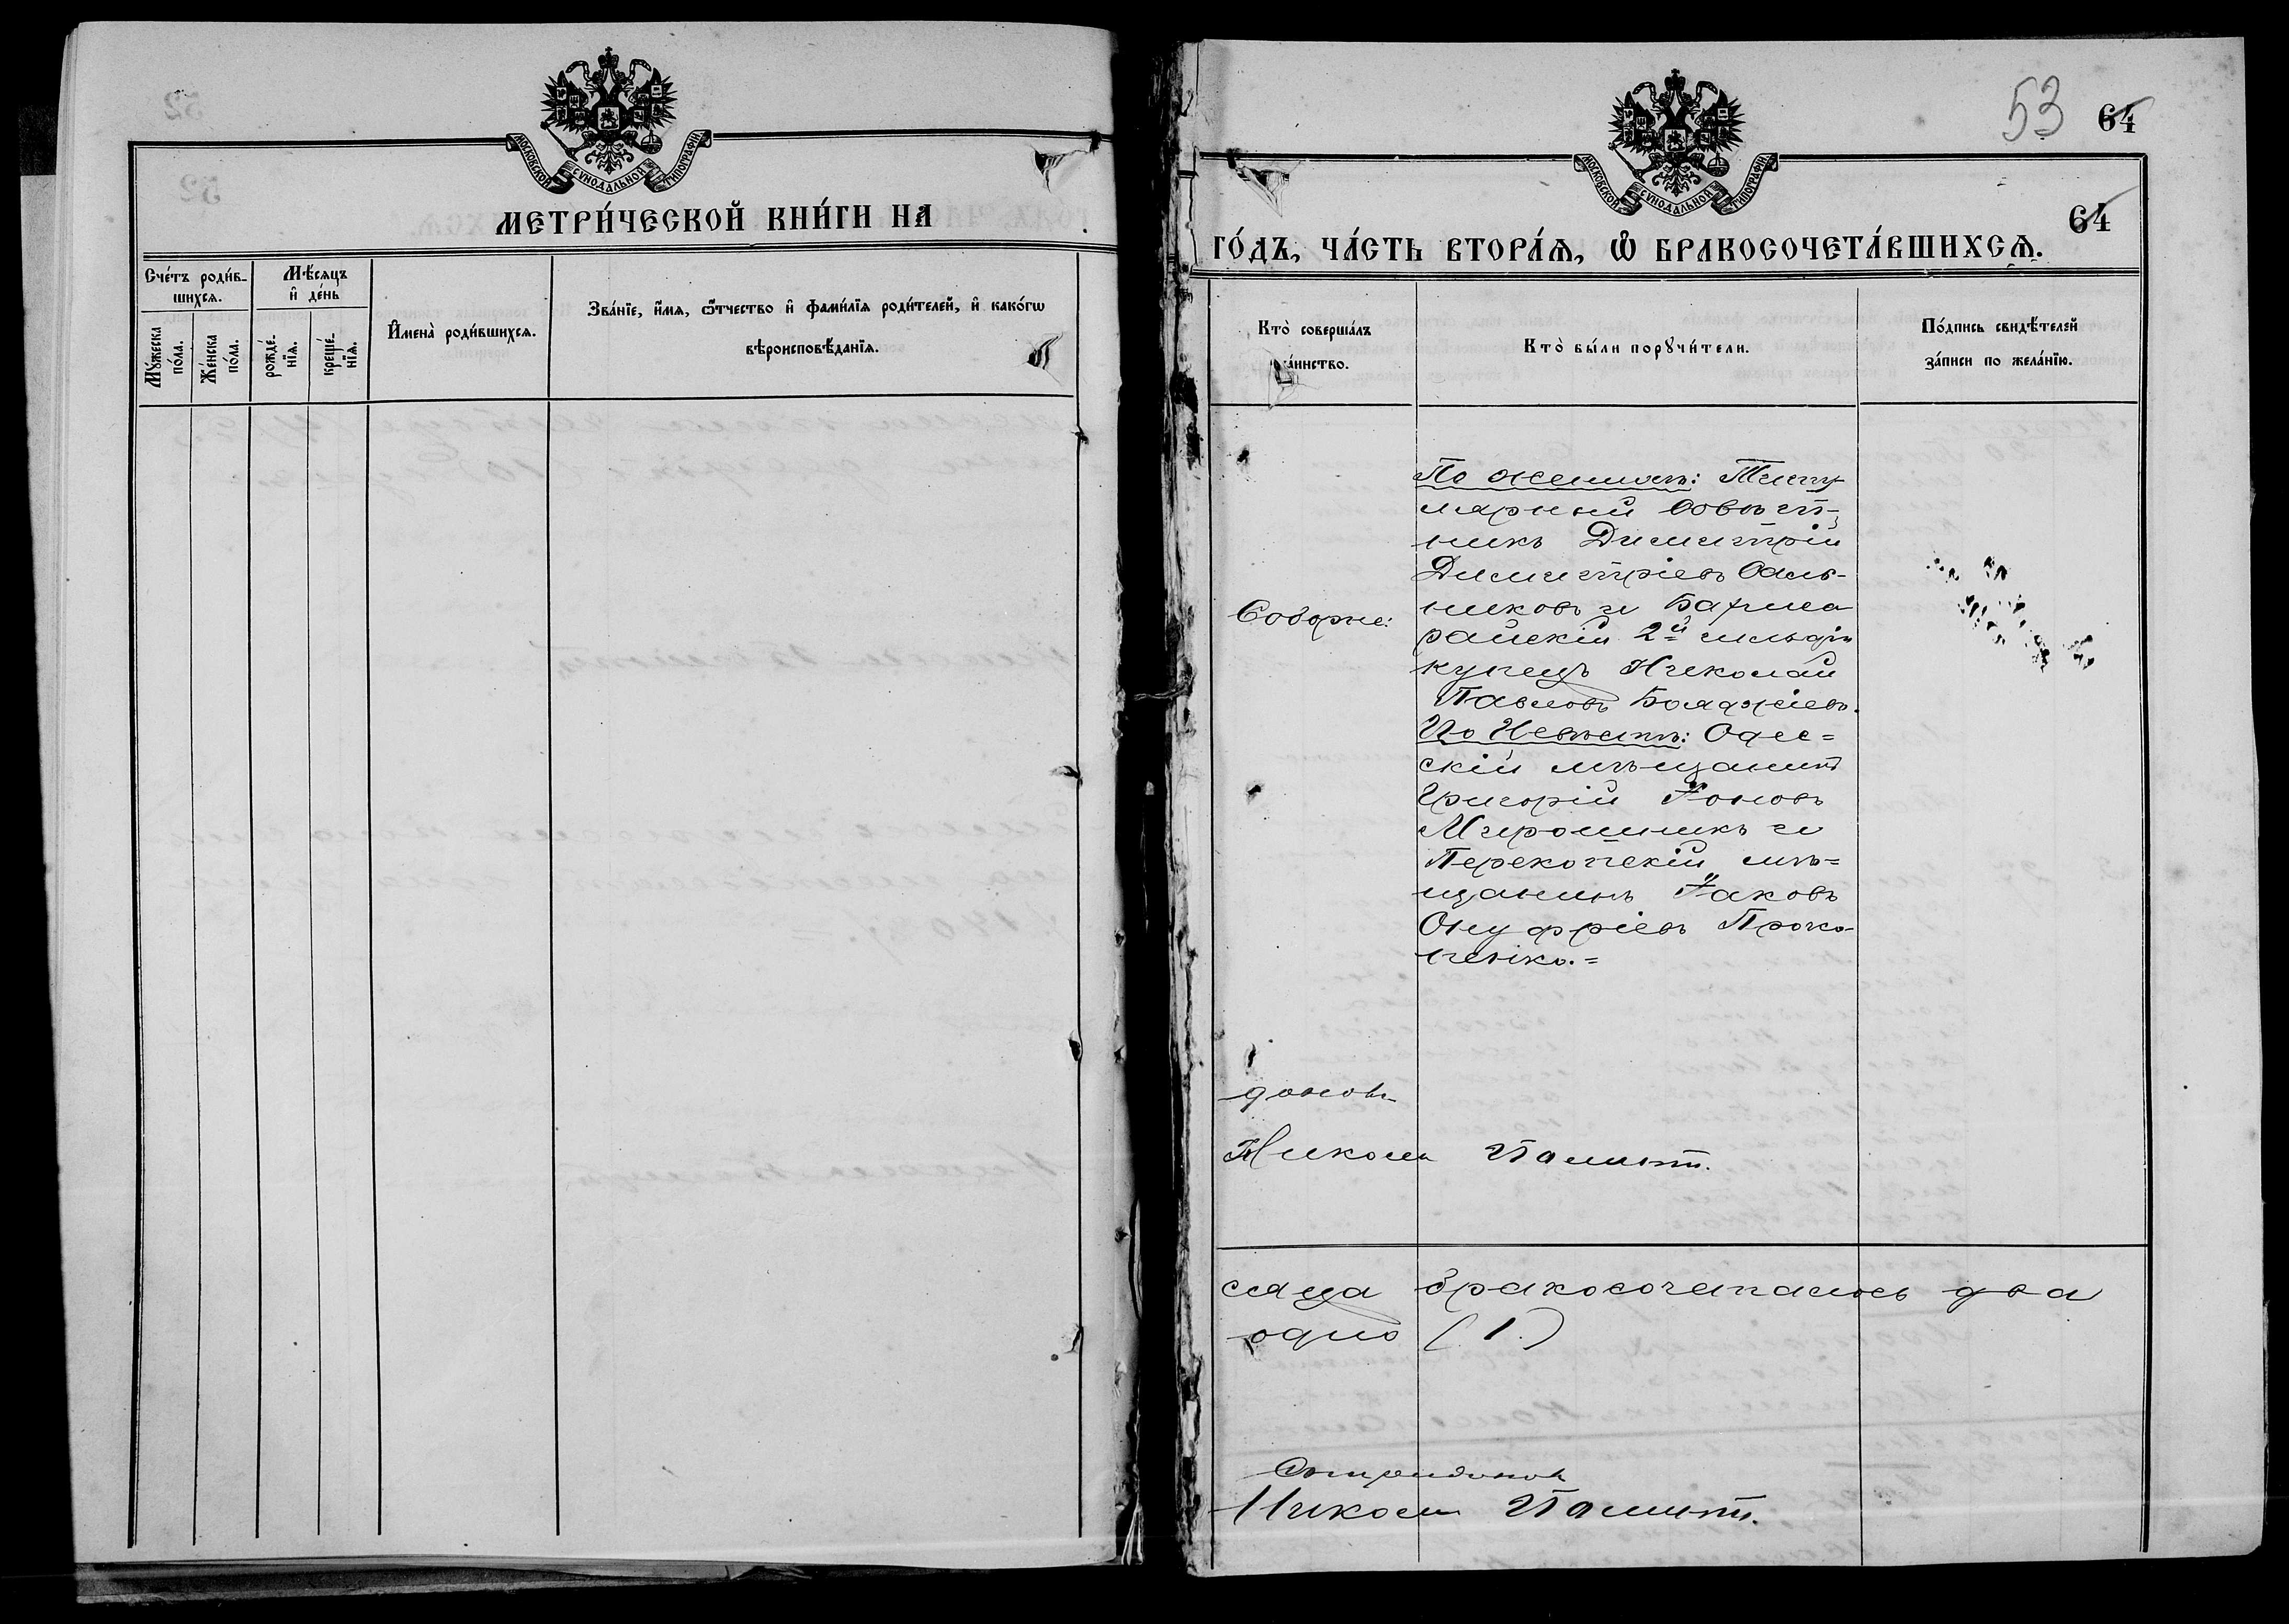 МОСКОВСКОЙ СѴНОДАЛЬНОЙ ТИПОГРАФІИ
МЕТРИ́ЧЕСКОЙ КНИ́ГИ НА
Сче́тъ роди́в-
шихся.
Мѣ́сяцъ
и҆ де́нь
Мꙋ́жеска
по́ла.
Же́нска
по́ла.
рожде́-
нїя.
креще́-
нїя.
И҆мена̀ роди́вшихся.
Зва́нїе, и҆́мя, ѻ҆́тчество и҆ фами́лїя роди́телей, и҆ како́гѡ
вѣроисповѣ́данїя.
53 64
МОСКОВСКОЙ СѴНОДАЛЬНОЙ ТИПОГРАФІИ
64
ГО́ДЪ, ЧА́СТЬ ВТОРА́Я, Ѡ҆ БРАКОСОЧЕТА́ВШИХСЯ.
Кто̀ соверша́лъ
та́инство.
Кто̀ бы́ли порꙋчи́тели.
По́дпись свидѣ́телей
за́писи по жела́нїю.
По женихѣ: Титу
лярный Совѣт-
никъ Димитрій
Димитріевъ Саль-
никовъ и Бахчиса
райскій 2й гильдіи
купецъ Николай
Павловъ Бояджіевъ.
По Невѣстѣ: Одес=
скій мѣщанинъ
Григорій Іоновъ
Мирошникъ и
Перекопскій мѣ=
щанинъ Іаковъ
Онуфріевъ Проко-
пенко.=
Соборне:
доновъ
Никола
сяца бракосочеталось два
одно (1.)
Никола